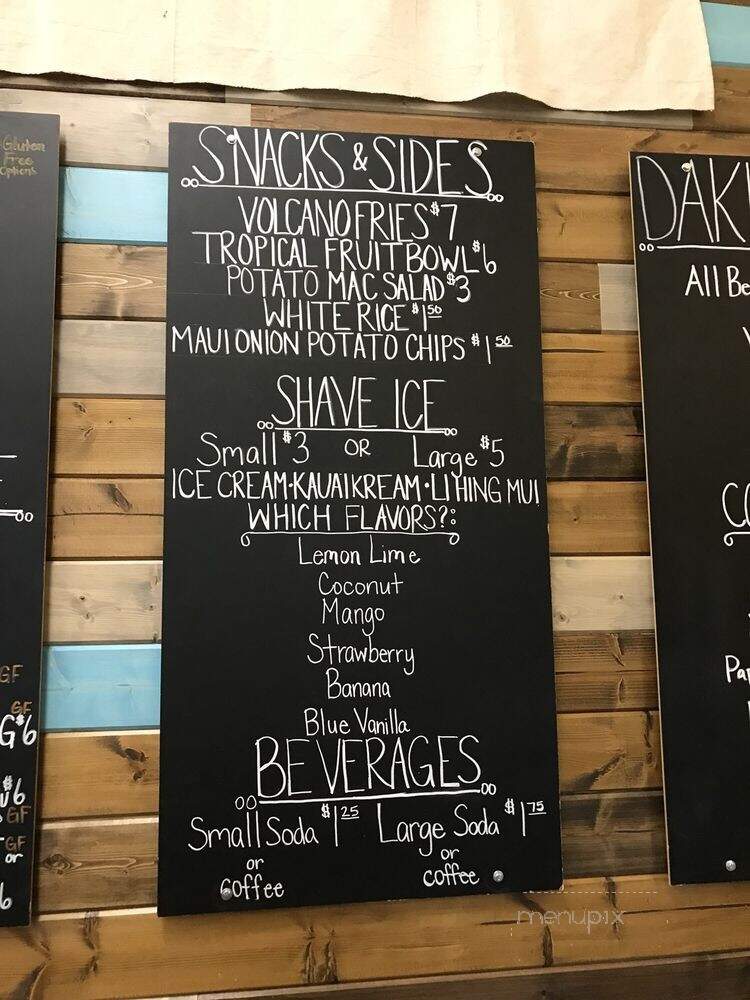 Gluten
Free
Options
SNACKS & SIDES
VOLCANO FRIES $7
TROPICAL FRUIT BOWL $6
POTATO MAC SALAD $3
WHITE RICE $1 50
MAUI ONION POTATO CHIPS $1 50
SHAVE ICE
Small $3 OR Large $5
ICE CREAM•KAUAI KREAM•LI HING MUI
WHICH FLAVORS?:
Lemon Lime
Coconut
Mango
Strawberry
Banana
Blue Vanilla
BEVERAGES
Small Soda $1 25 Large Soda $1 75
or or
Coffee coffee
GF
GF
G $6
GF
GF
or
DAK
All Be
CO
Pap
menupix